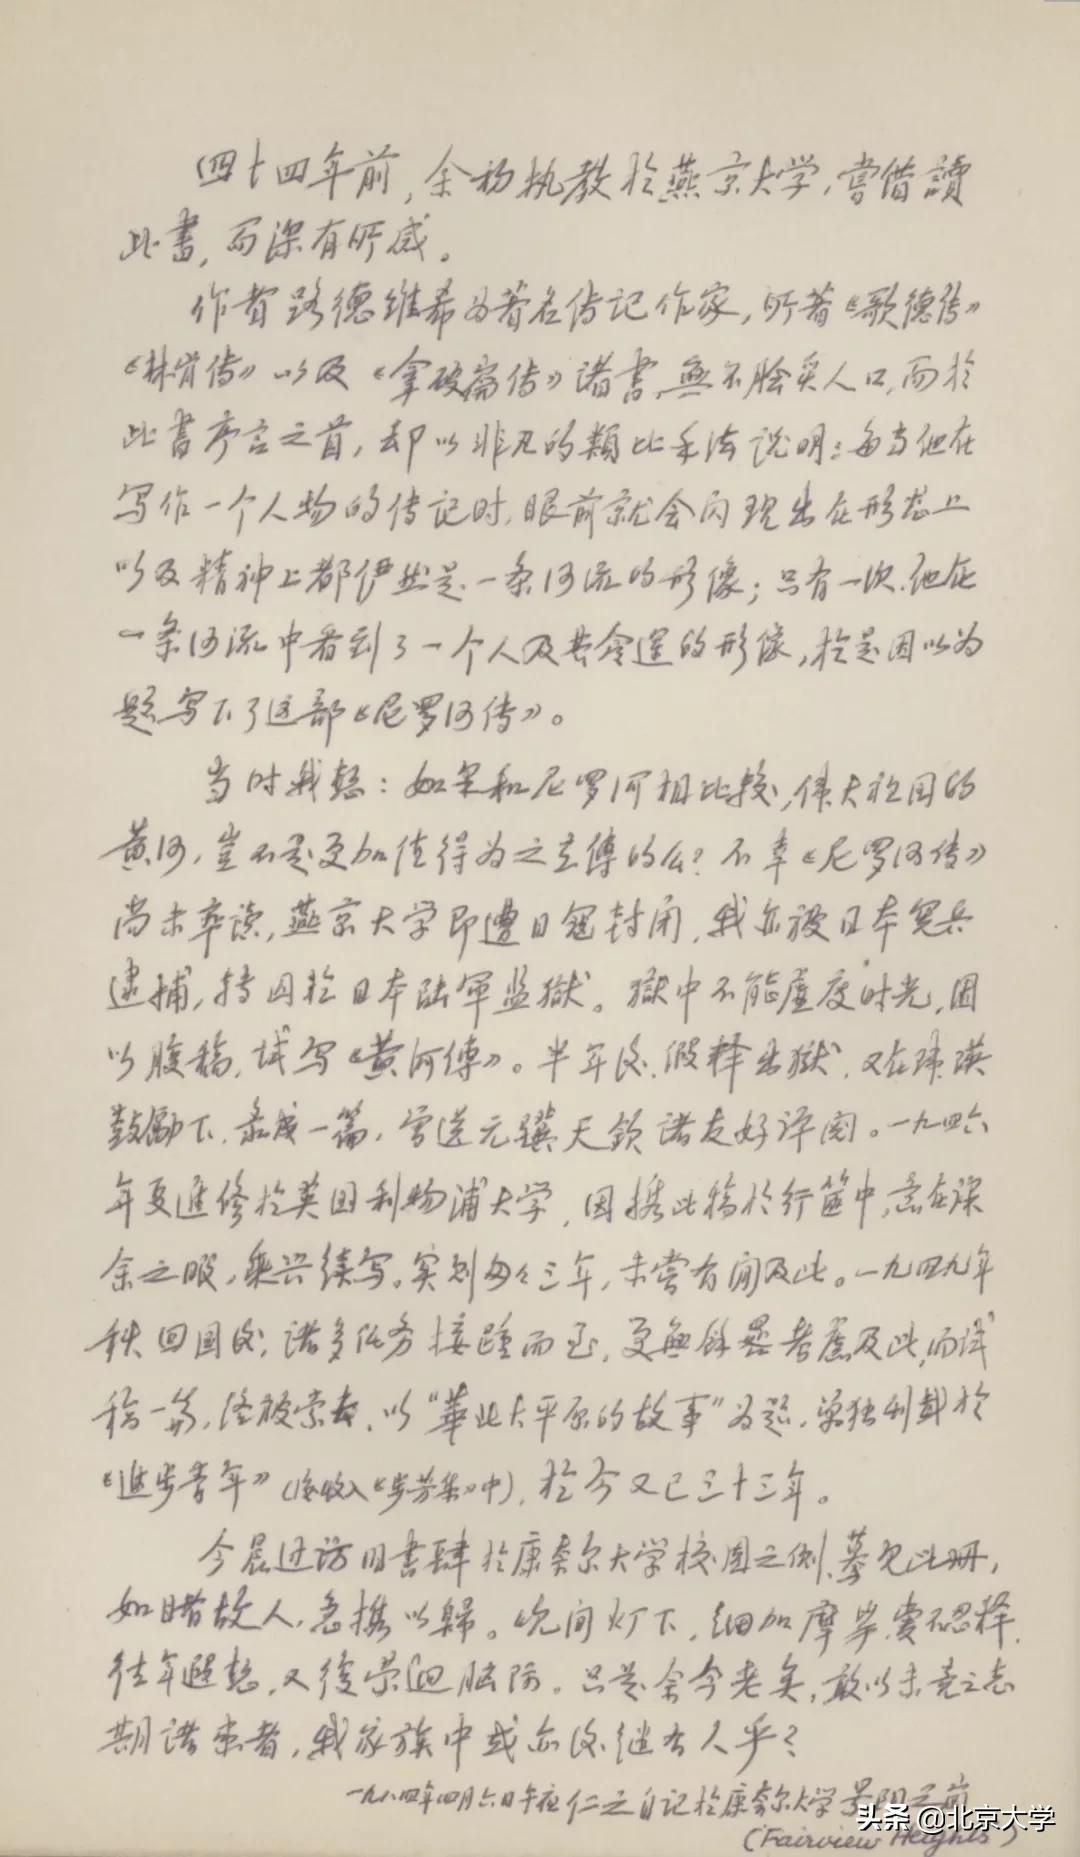 四十四年前，余初执教於燕京大学，嘗借讀
此書，而深有所感。
作者路德維希为著名传记作家，所著《歌德传》
《林肯传》以及《拿破崙传》诸書，無不脍炙人口，而於
此書序言之首，却以非凡的類比手法说明：每当他在
写作一个人物的传记时，眼前就会闪现出在形态上
以及精神上都俨然是一条河流的形像；只有一次，他在
一条河流中看到了一个人及其命運的形像，於是因以为
题写下了这部《尼罗河传》。
当时我想：如果和尼罗河相比较，伟大祖国的
黄河，豈不是更加值得为之立傳的么？不幸《尼罗河传》
尚未卒读，燕京大学即遭日寇封闭，我亦被日本宪兵
逮捕，转囚於日本陆軍监獄。獄中不能虚度时光，因
以腹稿，试写《黄河傳》。半年后，假释出獄，又在瑋瑛
鼓励下，录成一篇，曾送元骥天钦诸友好评阅。一九四六
年夏進修於英国利物浦大学，因携此稿於行篋中，意在课
余之暇，乘兴续写。实则匆々三年，未嘗有间及此。一九四九年
秋回国后，诸多任务接踵而至，更無餘暑考慮及此，而试
稿一篇，终被索去，以“華北大平原的故事”为题，单独刊载於
《進步青年》（后收入《步芳集》中），於今又已三十三年。
今晨过访旧書肆於康奈尔大学校園之側，驀見此册，
如晤故人，急携以歸。晚间灯下，细加摩挲，爱不忍释，
往年遐想，又復荣迴脑际。只是余今老矣，敢以未竟之志
期诸来者，我家族中或亦后继有人乎？
一九八四年四月六日午夜 仁之自记於康奈尔大学景阳之岗
(Fairview Heights)
头条 @北京大学